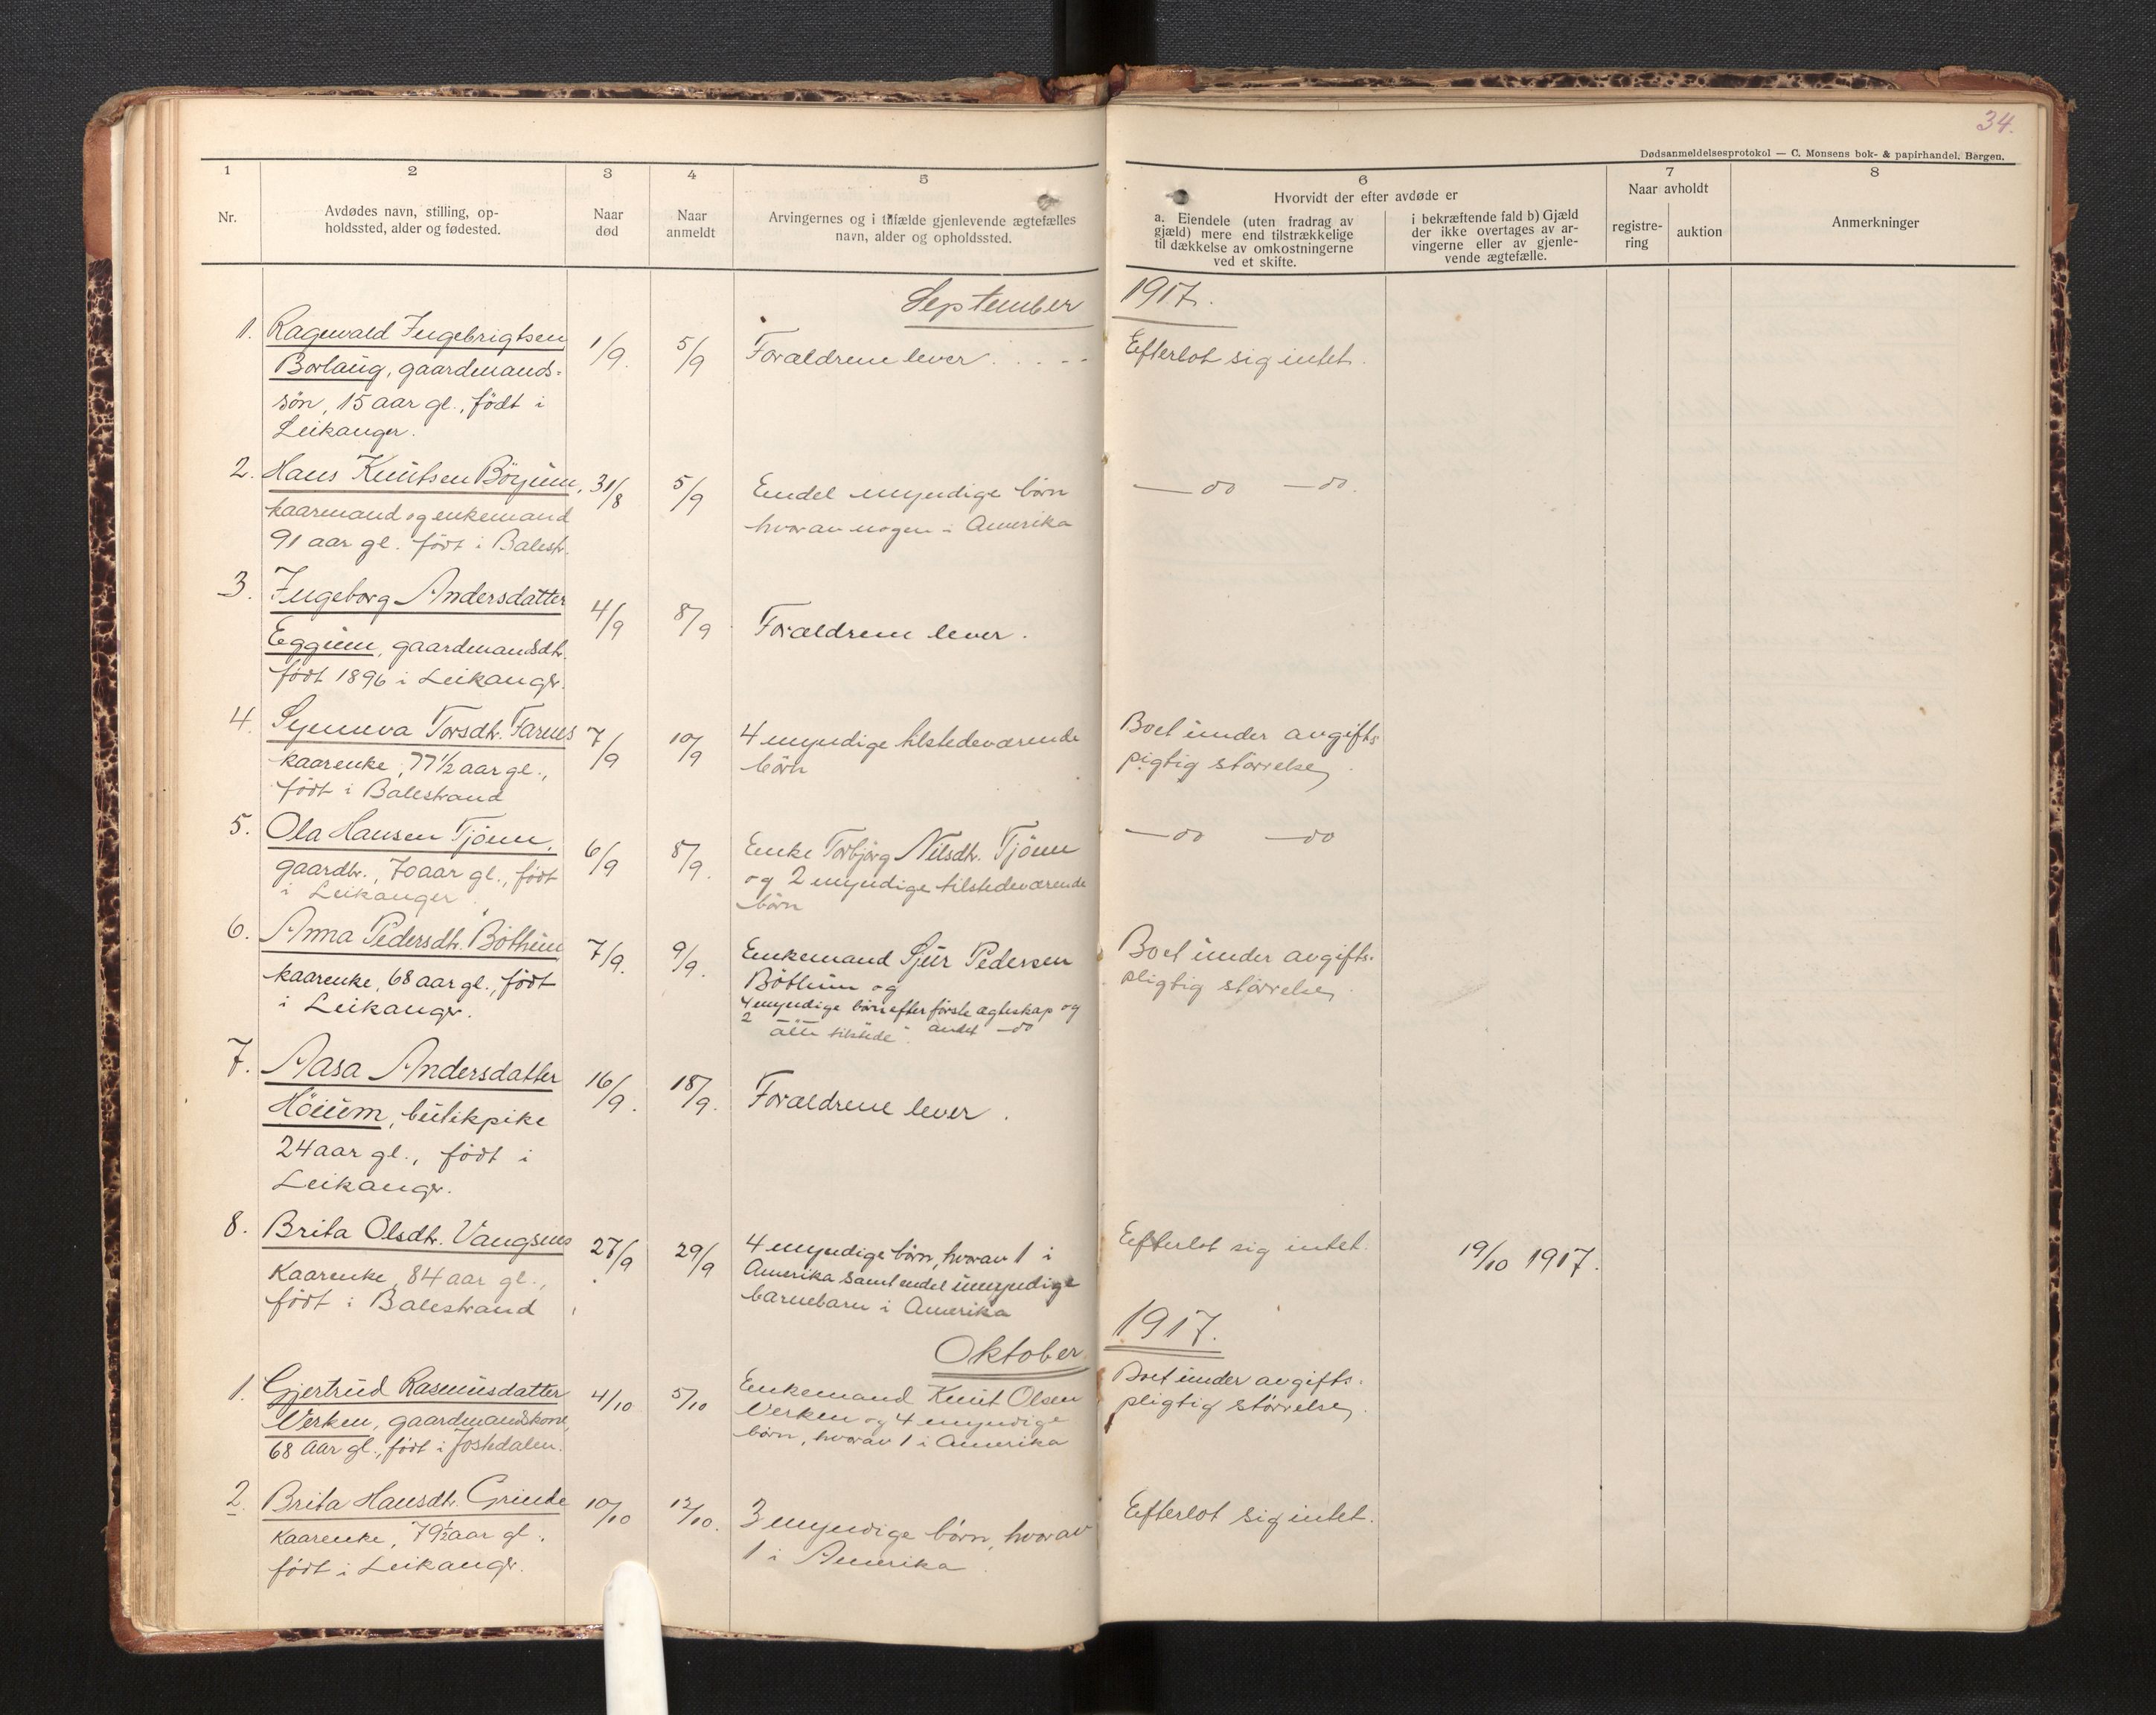 34.
Dødsanmeldelsesprotokol — C. Monsens bok- & papirhandel. Bergen.
1 2 3 4 5 6 7 8
Nr.
Avdødes navn, stilling, op-
holdssted, alder og fødested.
Naar
død
Naar
anmeldt
Arvingernes og i tilfælde gjenlevende ægtefælles
navn, alder og opholdssted.
Hvorvidt der efter avdøde er
a. Eiendele (uten fradrag av
gjæld) mere end tilstrækkelige
til dækkelse av omkostningerne
ved et skifte.
i bekræftende fald b) Gjæld
der ikke overtages av ar-
vingerne eller av gjenle-
vende ægtefælle.
Naar avholdt
registre-
ring
auktion
Anmerkninger
September 1917.
1. Ragnvald Ingebrigtsen
Borlaug, gaardmands-
søn, 15 aar gl., født i
Leikanger.
1/9. 5/9
Forældrene lever.
Efterlot sig intet.
2. Hans Knutsen Böyum,
kaarmand og enkemand
91 aar gl. født i Balestr.
31/8 5/9
Endel myndige børn
hvorav nogen i Amerika
— do — do.
3. Ingeborg Andersdatter
Eggum, gaardmandsdtr.
født 1896 i Leikangr.
4/9 8/9
Forældrene lever.
4. Synneva Torsdtr. Farnes
kaarenke, 77 1/2 aar gl.,
født i Balestrand
7/9 10/9
4 myndige tilstedeværende
börn
Boet under avgifts
pigtig størrelse,
5. Ola Hansen Tjönn,
gaardbr., 70 aar gl., født
i Leikanger
6/9 8/9.
Enke Torbjørg Nilsdtr. Tjönn
og 2 myndige tilstedeværende
børn
— do — do
6. Anna Pedersdtr. Böthun
kaarenke, 68 aar gl., født
i Leikangr.
7/9. 9/9.
Enkemand Sjur Pedersen
Böthun og
4 myndige børn efter første ægteskap og
2 " " " andet — do
alle tilstede.
Boet under avgifts-
pligtig størrelse,
7. Aasa Andersdatter
Höium, butikpike
24 aar gl., født i
Leikangr.
16/9. 18/9.
Forældrene lever.
8. Brita Olsdtr. Vangsnes
Kaarenke, 84 aar gl.,
født i Balestrand
27/9 29/9
4 myndige børn, hvorav 1 i
Amerika samt endel umyndige
barnebarn i Amerika
Efterlot sig intet.
19/10 1917.
Oktober 1917.
1. Gjertrud Rasmusdatter
Verken, gaardmandskone,
68 aar gl., født i Jostedalen.
4/10 5/10
Enkemand Knut Olsen
Verken og 4 myndige
børn, hvorav 1 i Amerika
Boet under avgifts-
pligtig størrelse,
2. Brita Hansdtr. Grinde
Kaarenke, 79 1/2 aar gl.
født i Leikangr.
10/10 12/10.
3 myndige børn, hvorav
1 i Amerika
Efterlot sig intet.